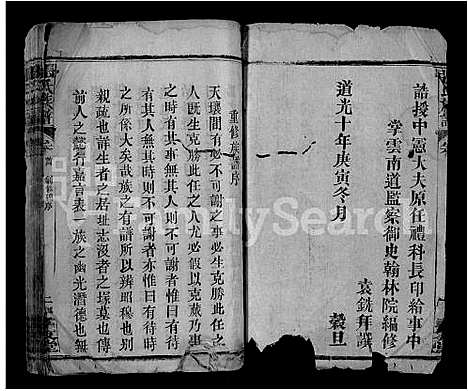 誥授中憲大夫原任禮科長印給事中
掌雲南道監察御史翰林院編修
袁銑拜譔
道光十年庚寅冬月
穀旦
重修族譜序
天壤間有必不可謝之事必生克勝此任之
人既生克勝此任之人尤必假以克蕆乃事
之時有其事無其人則不可謝者惟曰有待
有其人無其時則不可謝者亦惟曰有待時
之所係大矣哉族之有譜所以辨昭穆也別
親疏也詳生者之居址志沒者之塚墓也傳
前人之懿行嘉言表一族之幽光潛德也無
FamilySearch